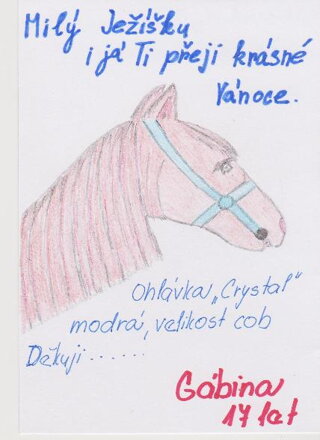 Milý Ježíšku
i já Ti přeji krásné
Vánoce.
Ohlávka „Crystal"
modrá, velikost cob
Děkuji......
Gábina
17 let